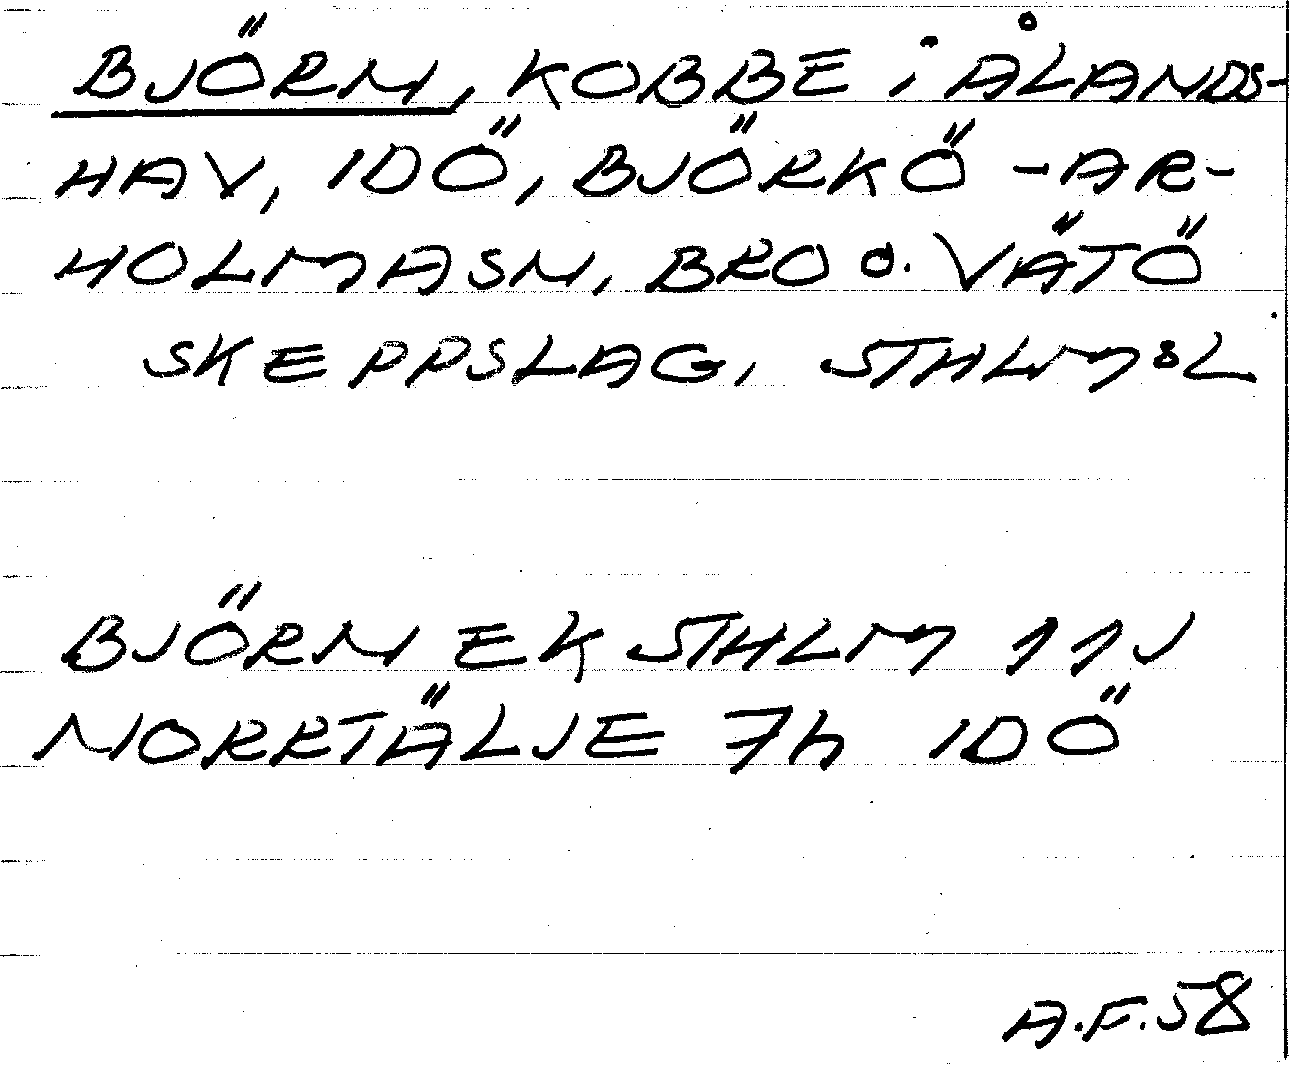 BJÖRN, KOBBE i ÅLANDS-
HAV, IDÖ, BJÖRKÖ-AR-
HOLMASN, BRO O. VÄTÖ
SKEPPSLAG, STHLMSL
BJÖRN EK STHLM 11J
NORRTÄLJE 7h IDÖ
A.F.58